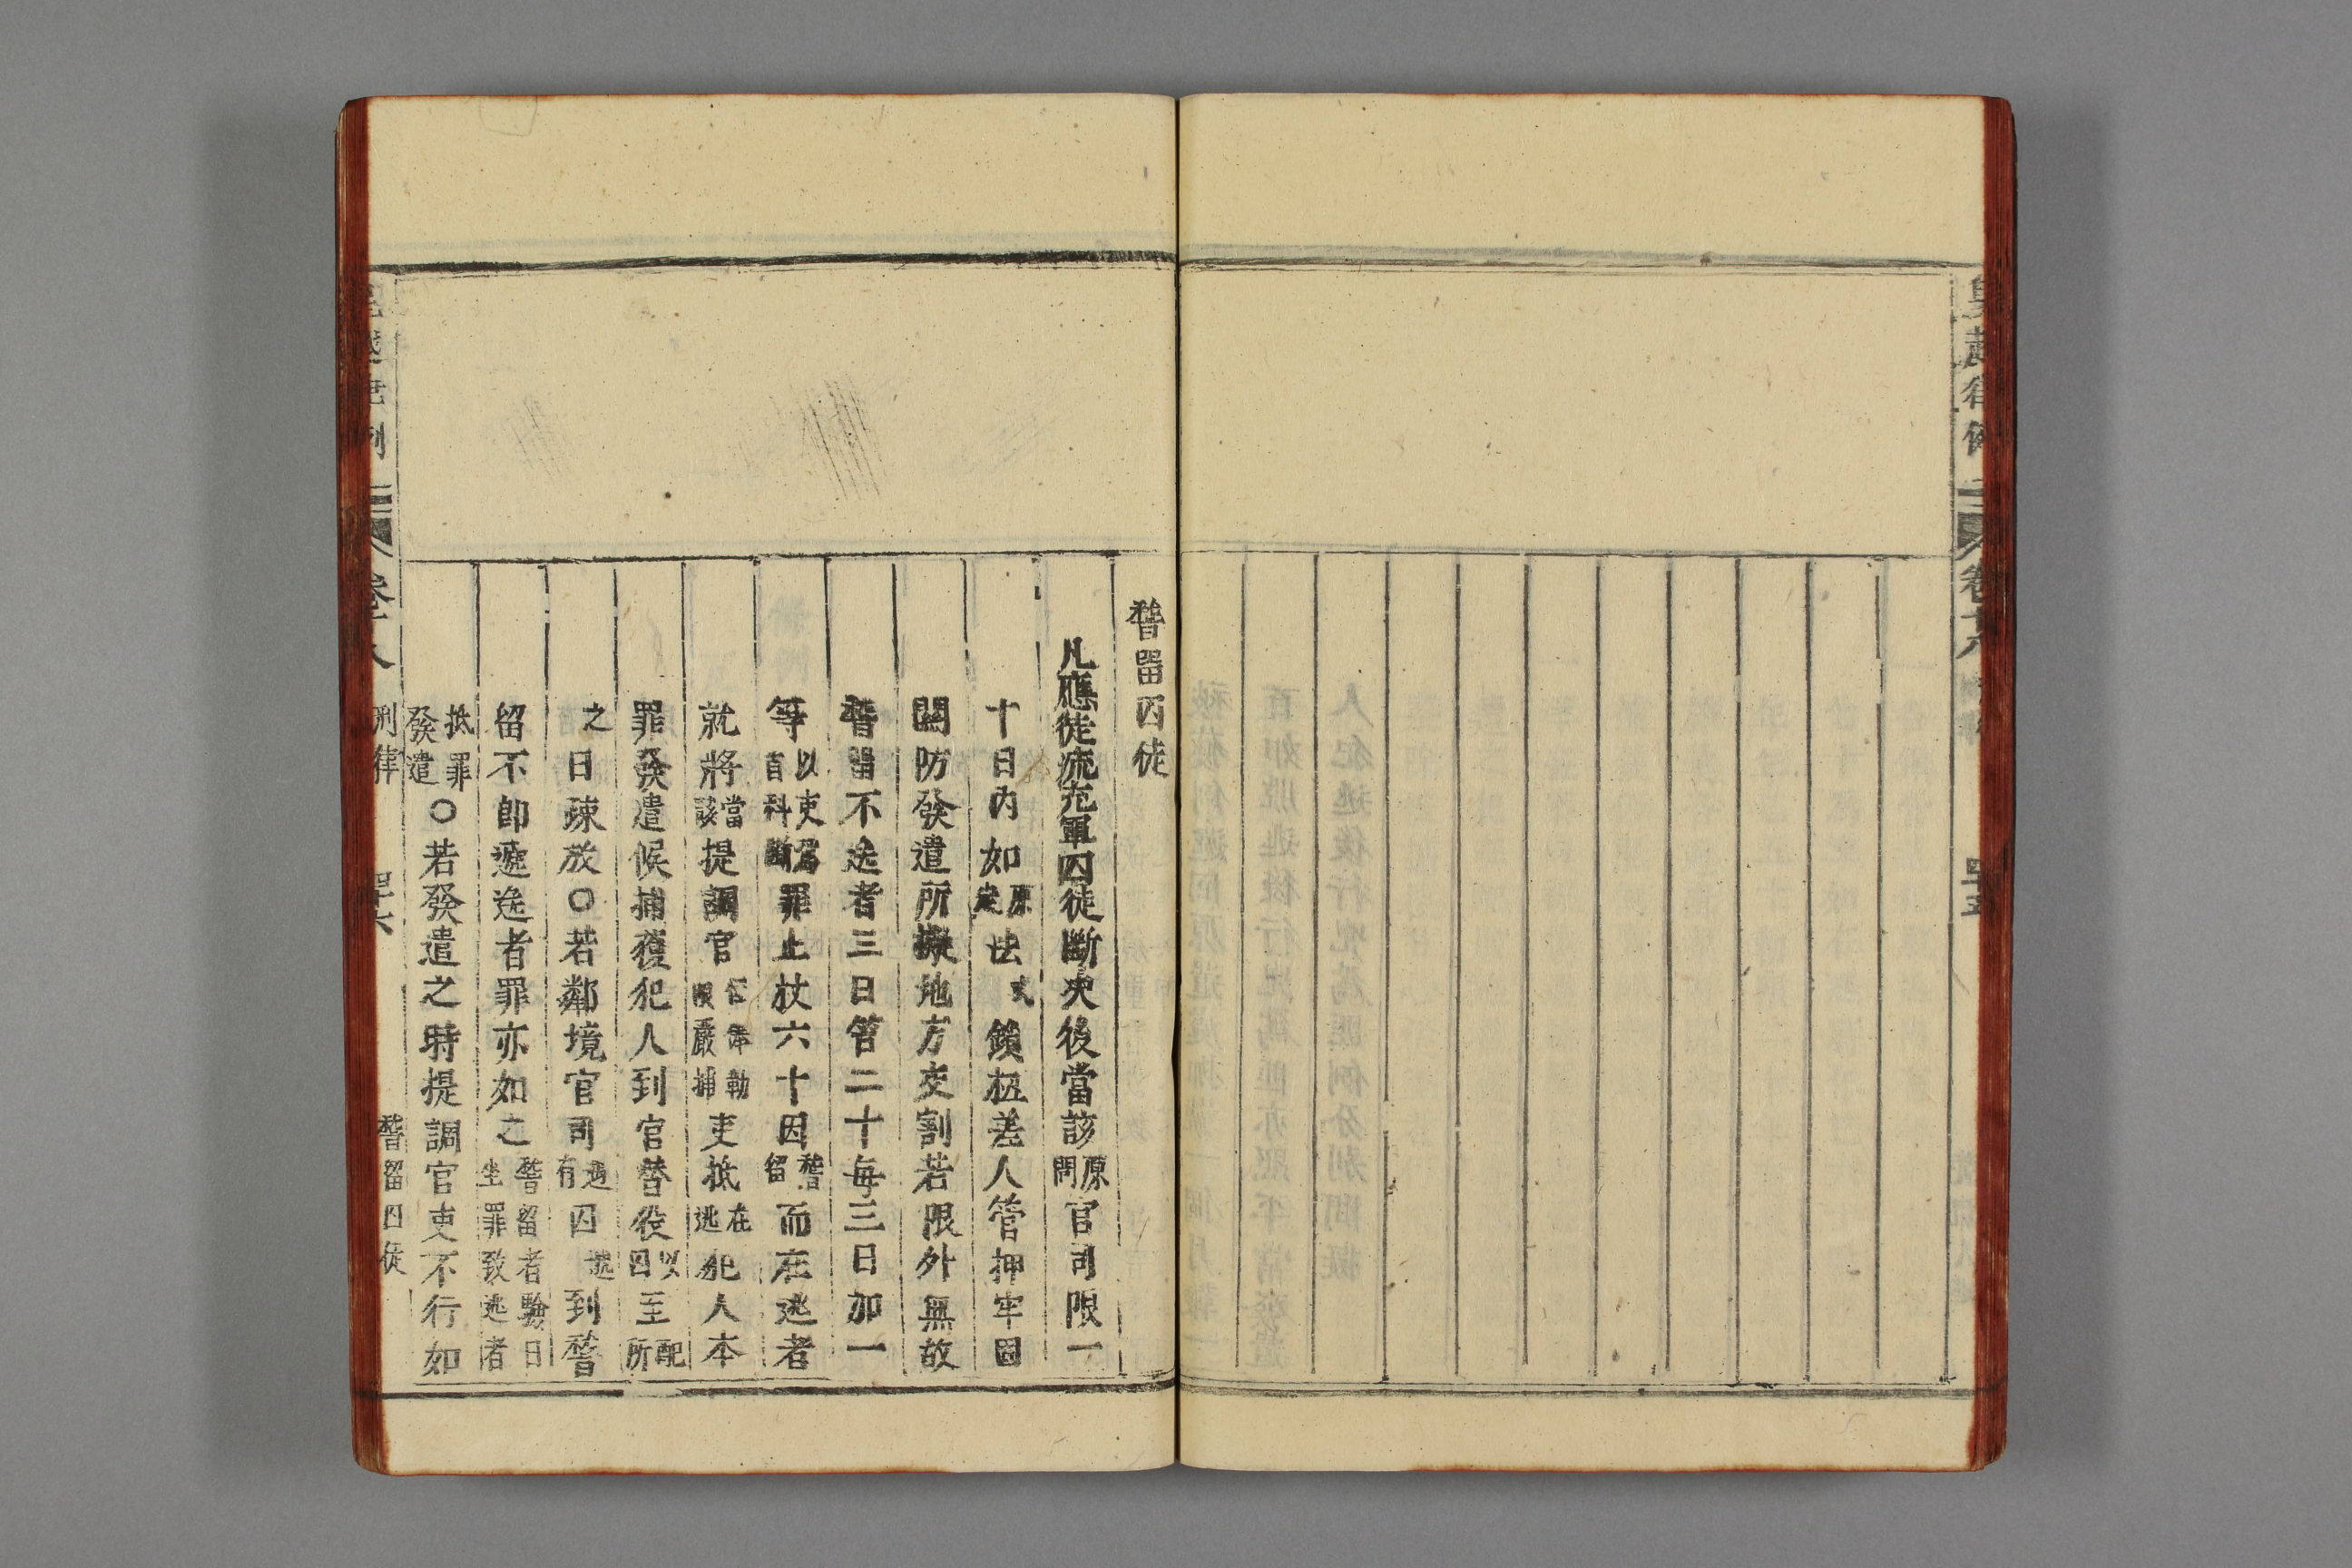 皇越律例
卷十八
四十五
稽留囚徒
凡應徒流充軍囚徒斷决後當該原問官司限一
十日內如原定法式鎖杻差人管押牢固
關防發遣所擬地方交割若限外無故
稽留不送者三日笞二十每三日加一
等以吏爲首科斷罪止杖六十因稽留而在逃者
就將當該提調官住俸勒限嚴捕吏抵在逃犯人本
罪發遣候捕獲犯人到官替役以囚至配所
之日疎放〇若鄰境官司遇有囚遞到稽
留不即遞送者罪亦如之稽留者驗日坐罪致逃者
抵罪發遣〇若發遣之時提調官吏不行如
皇越律例
卷十八
刑律
四十六
稽留囚徒